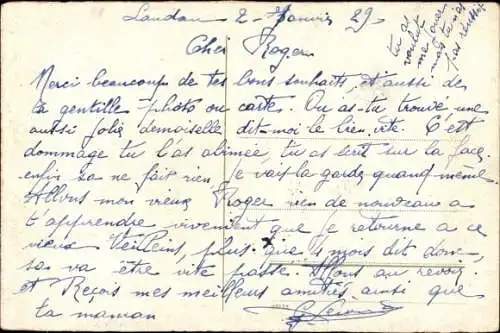 Landau 2 Janvier 29.
tu as
voulut
me
mais
pas réussir
Cher Roger
Merci beaucoup de tes bons souhaits, et aussi de
ta gentille photo ou carte. Ou as-tu trouvé une
aussi jolie demoiselle, dit-moi le bien vite. C'est
dommage tu l'as abimée, tu as écrit sur la face
enfin sa ne fait rien je vais la garder quand même.
Allons mon vieux Roger rien de nouveau a
t'apprendre, vivement que je retourne a ce
vieux plus que 4 mois dit donc,
sa va être vite passé. Allons au revoir
et Reçois mes meilleurs amitiés ainsi que
ta maman